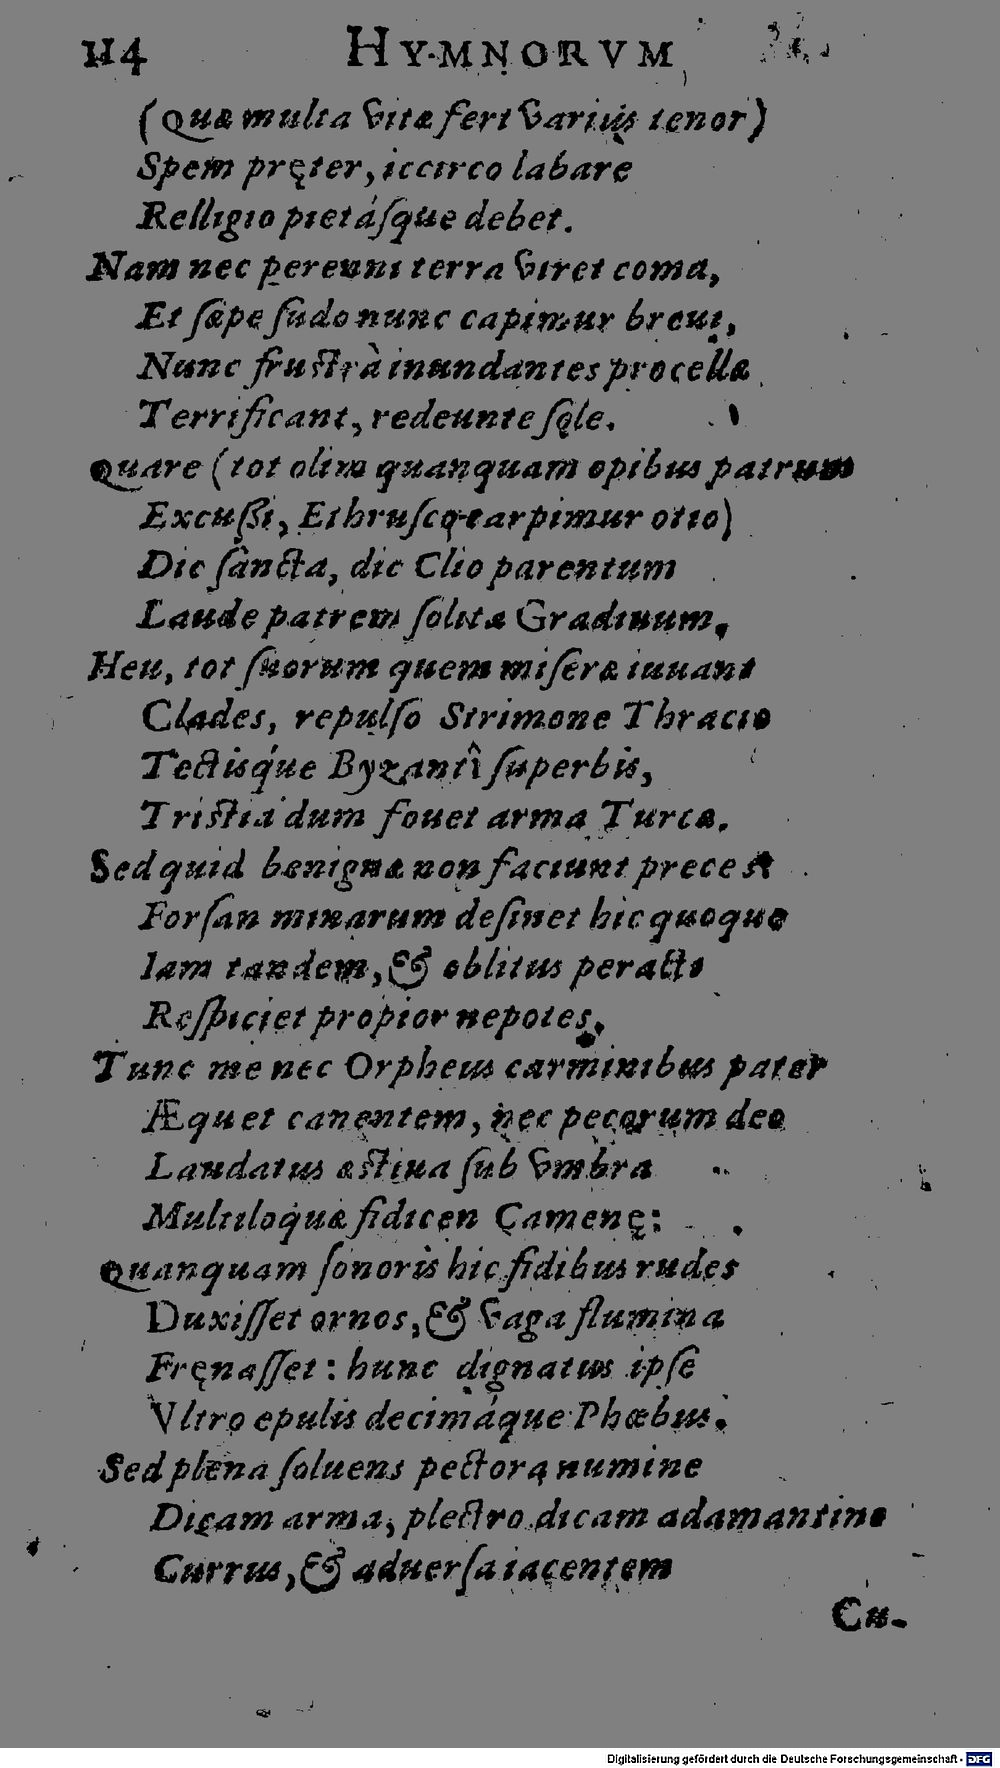 114 HYMNORVM
(Quæ multa vitæ fert varius tenor)
Spem pręter, iccirco labare
Relligio pietásque debet.
Nam nec perenni terra viret coma,
Et sæpe sudo nunc capimur breui,
Nunc frustrà inundantes procellæ
Terrificant, redeunte sole.
Quare (tot olim quanquam opibus patrum
Excussi, Ethrusco carpimur otio)
Dic sancta, dic Clio parentum
Laude patrem solitæ Gradiuum,
Heu, tot suorum quem miseræ iuuant
Clades, repulso Strimone Thracio
Tectisq́ue Byzantî superbis,
Tristia dum fouet arma Turcæ.
Sed quid benignæ non faciunt preces?
Forsan minarum desinet hic quoque
Iam tandem, & oblitus peracti
Respiciet propior nepotes.
Tunc me nec Orpheus carminibus pater
Æquet canentem, nec pecorum deo
Laudatus æstiua sub vmbra
Multiloquæ fidicen Camenę:
Quanquam sonoris hic fidibus rudes
Duxisset ornos, & vaga flumina
Fręnasset: hunc dignatus ipse
Vltro epulis decimáque Phœbus.
Sed plena soluens pectora numine
Dicam arma, plectro dicam adamantino
Currus, & aduersa iacentem
Cu-
Digitalisierung gefördert durch die Deutsche Forschungsgemeinschaft - DFG